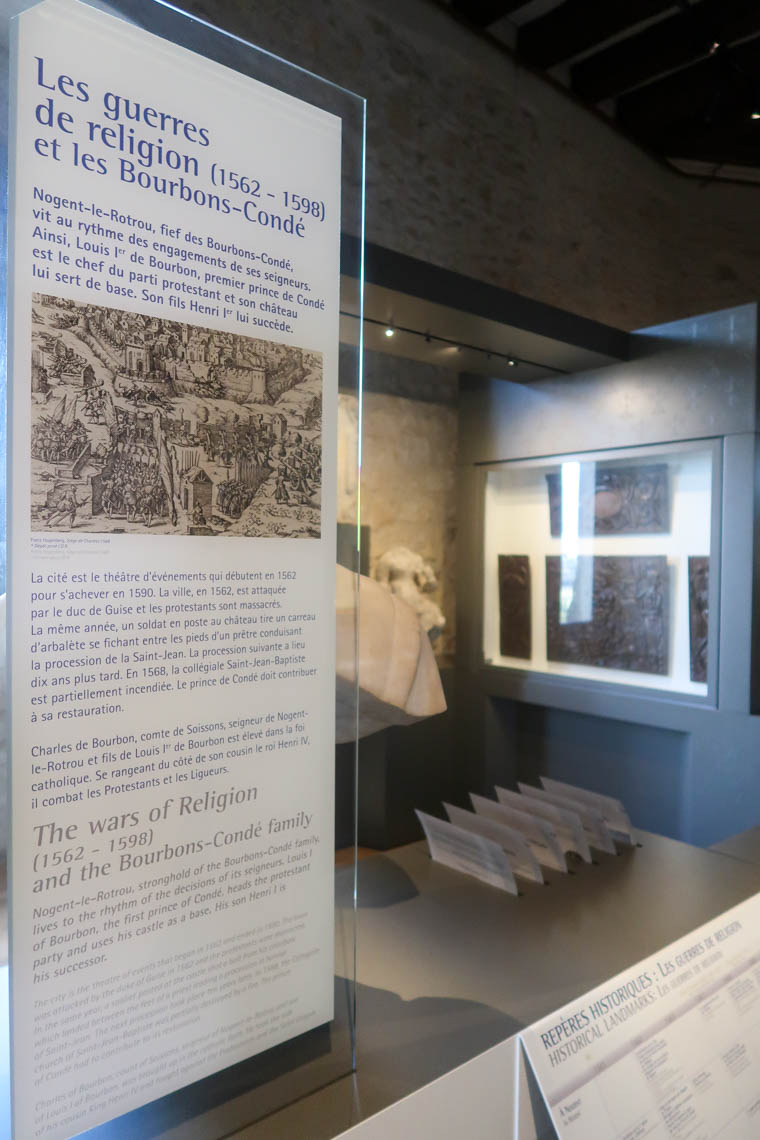 Les guerres
de religion (1562 - 1598)
et les Bourbons-Condé
Nogent-le-Rotrou, fief des Bourbons-Condé,
vit au rythme des engagements de ses seigneurs.
Ainsi, Louis Ier de Bourbon, premier prince de Condé
est le chef du parti protestant et son château
lui sert de base. Son fils Henri Ier lui succède.
La cité est le théâtre d'événements qui débutent en 1562
pour s'achever en 1590. La ville, en 1562, est attaquée
par le duc de Guise et les protestants sont massacrés.
La même année, un soldat en poste au château tire un carreau
d'arbalète se fichant entre les pieds d'un prêtre conduisant
la procession de la Saint-Jean. La procession suivante a lieu
dix ans plus tard. En 1568, la collégiale Saint-Jean-Baptiste
est partiellement incendiée. Le prince de Condé doit contribuer
à sa restauration.
Charles de Bourbon, comte de Soissons, seigneur de Nogent-
le-Rotrou et fils de Louis Ier de Bourbon est élevé dans la foi
catholique. Se rangeant du côté de son cousin le roi Henri IV,
il combat les Protestants et les Ligueurs.
The wars of Religion
(1562 - 1598)
and the Bourbons-Condé family
Nogent-le-Rotrou, stronghold of the Bourbons-Condé family,
lives to the rhythm of the decisions of its seigneurs. Louis I
of Bourbon, the first prince of Condé, heads the protestant
party and uses his castle as a base. His son Henri I is
his successor.
The city is the theatre of events that began in 1562 and ended in 1590. The town
was attacked by the duke of Guise in 1562 and the protestants were
In the same year, a soldier posted at the castle shot a bolt from his crossbow
which landed between the feet of a priest leading a procession in honour
of Saint-Jean. The next procession took place ten years later. In 1568, the Collegiate
church of Saint-Jean-Baptiste was partially destroyed by a fire. The prince
of Condé had to contribute to its restoration.
Charles of Bourbon, count of Soissons, seigneur of Nogent-le-Rotrou and son
of Louis I of Bourbon, was brought up in the catholic faith. He took the side
of his cousin King Henri IV and fought against the Protestants and the
REPÈRES HISTORIQUES : LES GUERRES DE RELIGION
HISTORICAL LANDMARKS: LES GUERRES DE RELIGION